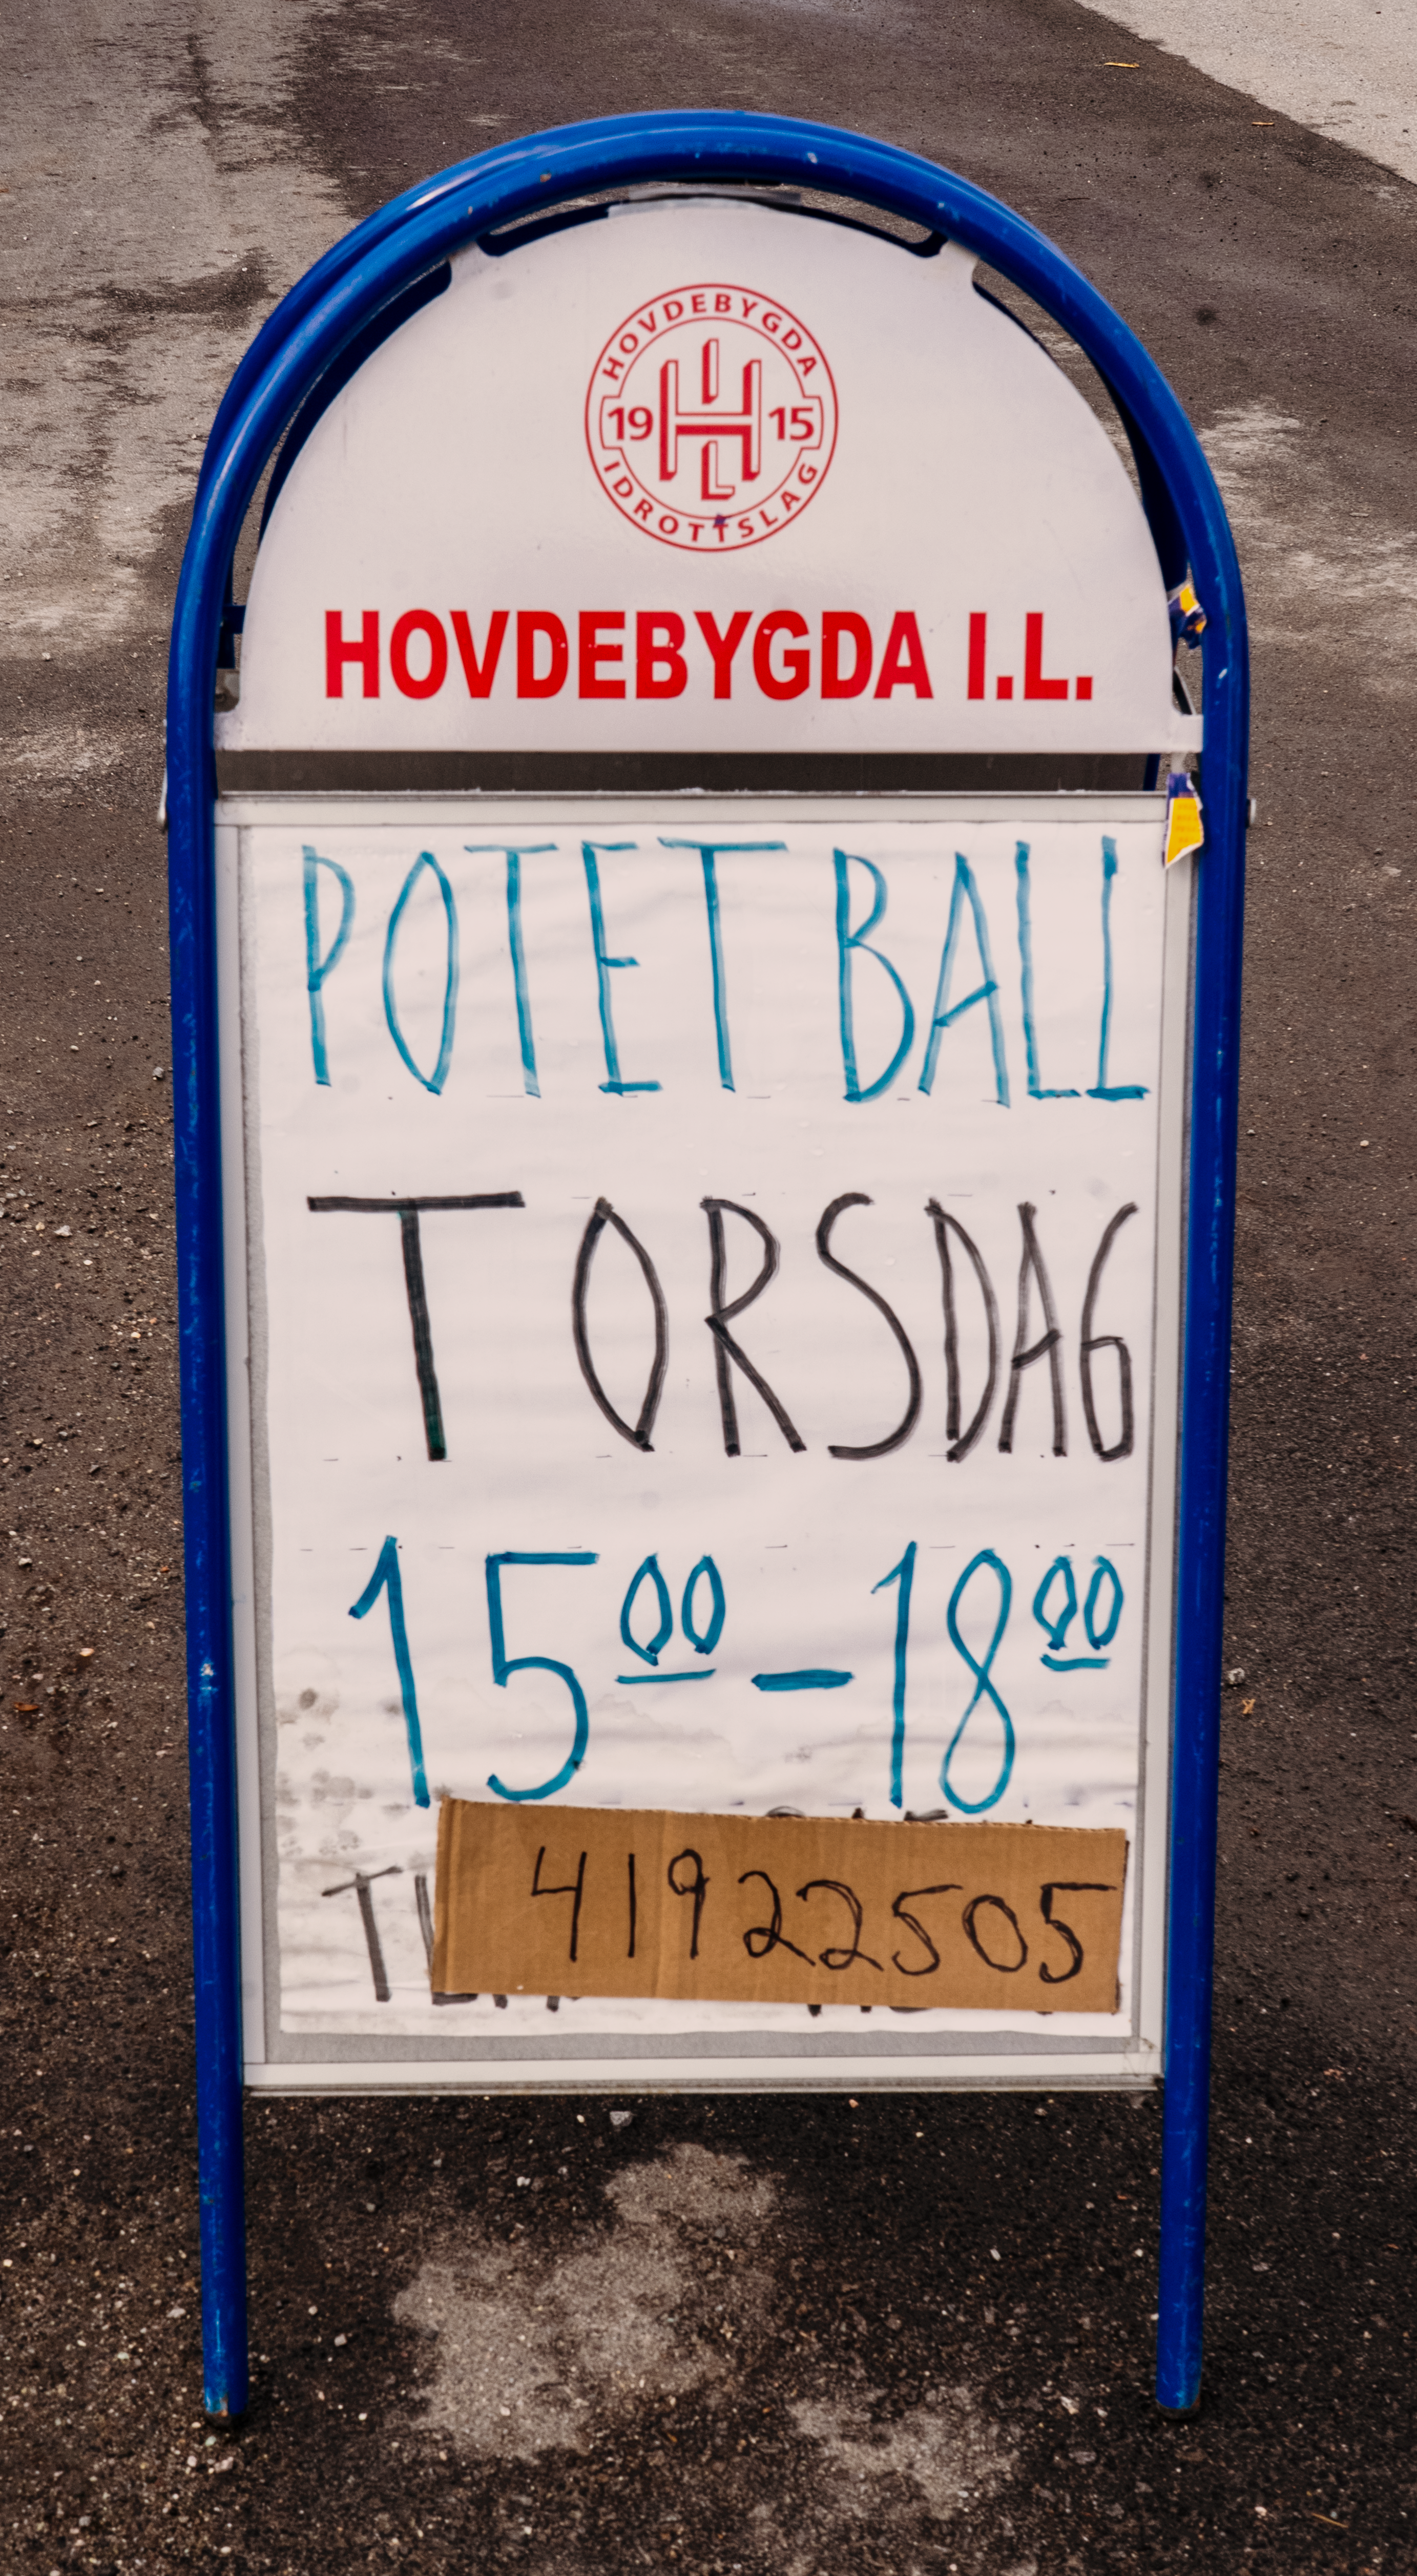 HOVDEBYGDA
19 15
IDROTTSLAG
HOVDEBYGDA I.L.
POTET BALL
TORSDAG
15⁰⁰ - 18⁰⁰
41922505